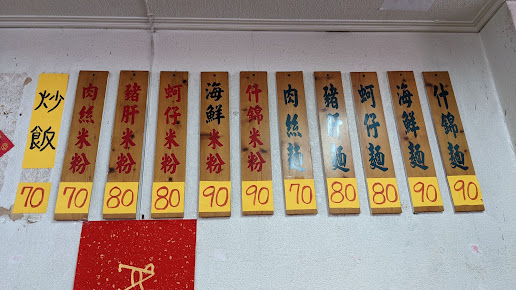 炒飯 70
肉絲米粉 70
豬肝米粉 80
蚵仔米粉 80
海鮮米粉 90
什錦米粉 90
肉絲麵 70
豬肝麵 80
蚵仔麵 80
海鮮麵 90
什錦麵 90